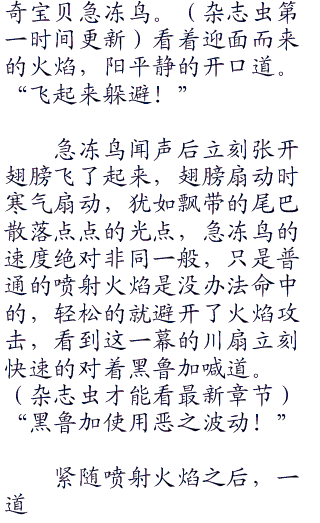 奇宝贝急冻鸟。（杂志虫第
一时间更新）看着迎面而来
的火焰，阳平静的开口道。
“飞起来躲避！”
急冻鸟闻声后立刻张开
翅膀飞了起来，翅膀扇动时
寒气扇动，犹如飘带的尾巴
散落点点的光点，急冻鸟的
速度绝对非同一般，只是普
通的喷射火焰是没办法命中
的，轻松的就避开了火焰攻
击，看到这一幕的川扇立刻
快速的对着黑鲁加喊道。
（杂志虫才能看最新章节）
“黑鲁加使用恶之波动！”
紧随喷射火焰之后，一
道